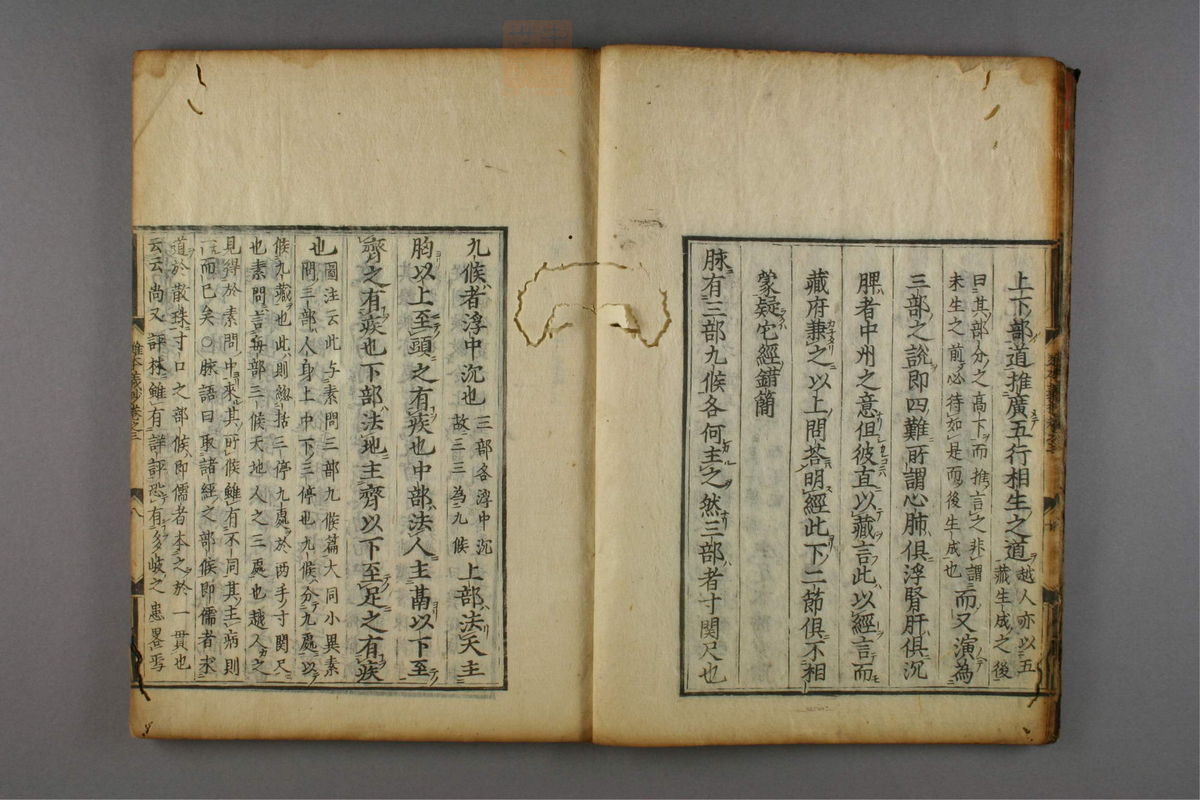 上下部道推廣五行相生之道越人亦以五藏生成之後
曰其部分之高下而推言之非謂未生之前必待如是而後生成也而又演為
三部之說即四難所謂心肺俱浮腎肝俱沉
脾者中州之意但彼直以藏言此以經言而
藏府兼之以上問荅明經此下二節俱不相
蒙疑它經錯簡
脉有三部九候各何主之然三部者寸関尺也
九候者浮中沉也三部各浮中沉故三三為九候上部法天主
胸以上至頭之有疾也中部法人主鬲以下至
齊之有疾也下部法地主齊以下至足之有疾
也圖注云此与素問三部九候篇大同小異素問三部人身上中下三停也九候分九處以
候九藏也此則緫括三停九處於两手寸関尺也素問言每部三候天地人之三處也越人之
見得於素問中來其所候雖有不同其主病則一而已矣○脉語曰取諸經之部候即儒者求
道於散珠寸口之部候即儒者本之於一貫也云云尚又評林雖有詳評恐有多岐之患畧焉